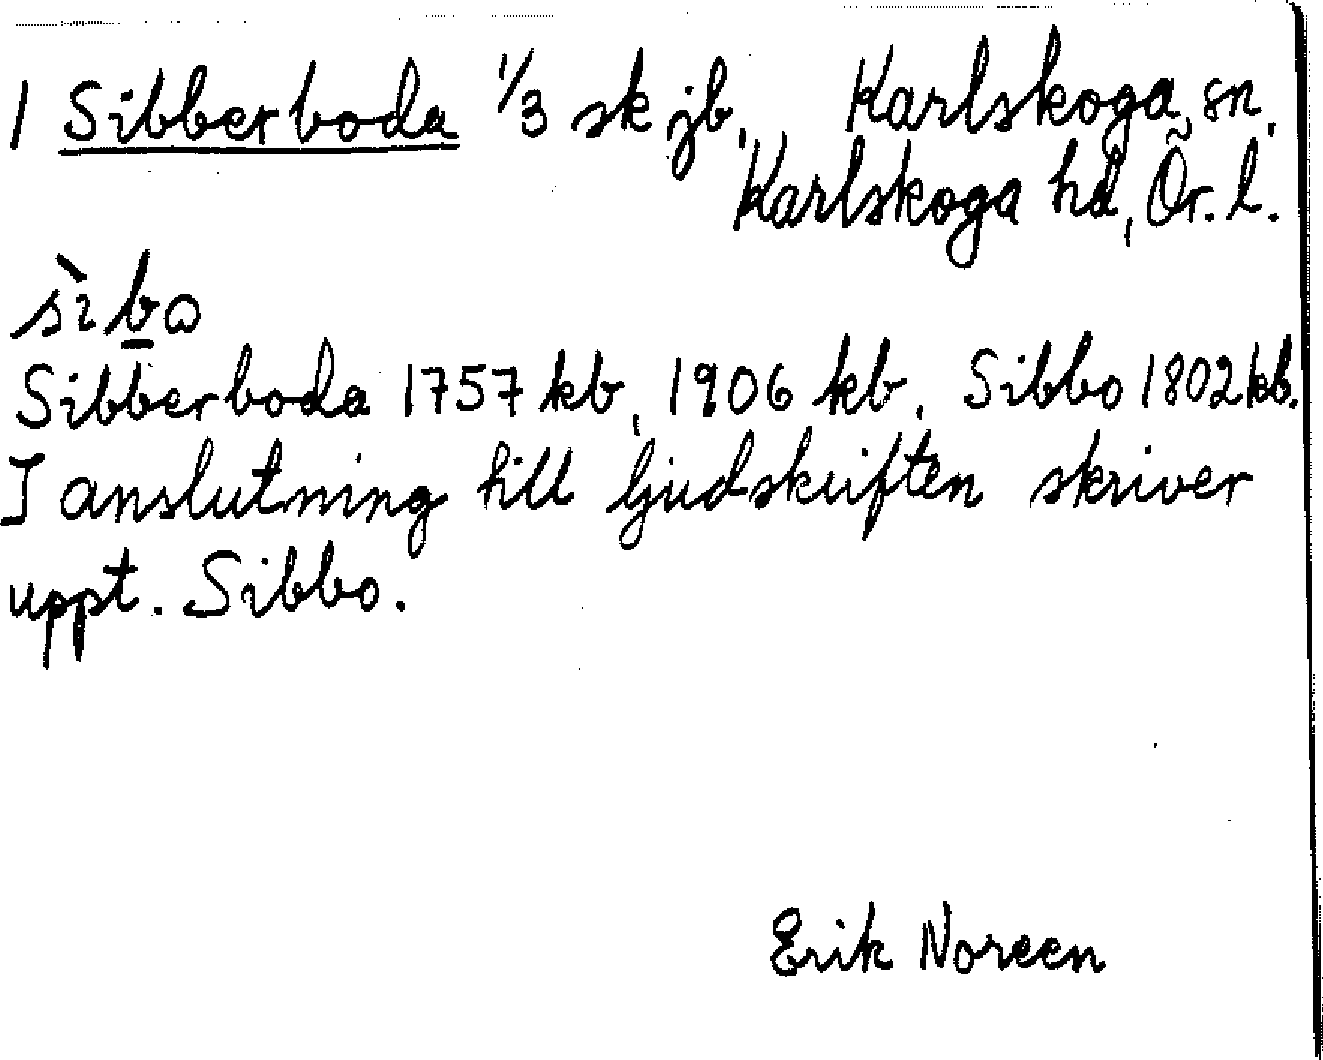 1 Sibberboda 1/3 sk jb, Karlskoga sn.
Karlskoga hd, Ör. l.
sìbɷ
Sibberboda 1757 kb, 1906 kb. Sibbo 1802 kb.
I anslutning till ljudskriften skriver
uppt. Sibbo.
Erik Noreen